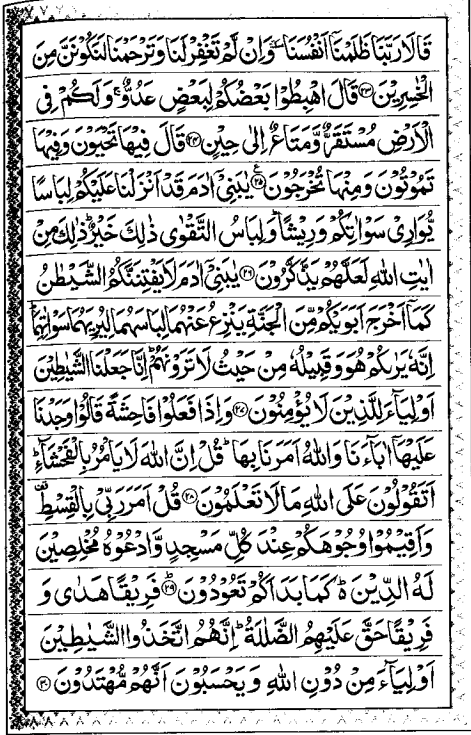 قَالَا رَبَّنَا ظَلَمْنَآ اَنْفُسَنَا وَاِنْ لَّمْ تَغْفِرْ لَنَا وَتَرْحَمْنَا لَنَكُوْنَنَّ مِنَ
الْخٰسِرِيْنَ ﴿۲۳﴾ قَالَ اهْبِطُوْا بَعْضُكُمْ لِبَعْضٍ عَدُوٌّ ۚ وَلَكُمْ فِى
الْاَرْضِ مُسْتَقَرٌّ وَّمَتَاعٌ اِلٰى حِيْنٍ ﴿۲۴﴾ قَالَ فِيْهَا تَحْيَوْنَ وَفِيْهَا
تَمُوْتُوْنَ وَمِنْهَا تُخْرَجُوْنَ ﴿۲۵﴾ يٰبَنِىْٓ اٰدَمَ قَدْ اَنْزَلْنَا عَلَيْكُمْ لِبَاسًا
يُّوَارِىْ سَوْاٰتِكُمْ وَرِيْشًا ؕ وَلِبَاسُ التَّقْوٰى ذٰلِكَ خَيْرٌ ؕ ذٰلِكَ مِنْ
اٰيٰتِ اللّٰهِ لَعَلَّهُمْ يَذَّكَّرُوْنَ ﴿۲۶﴾ يٰبَنِىْٓ اٰدَمَ لَا يَفْتِنَنَّكُمُ الشَّيْطٰنُ
كَمَآ اَخْرَجَ اَبَوَيْكُمْ مِّنَ الْجَنَّةِ يَنْزِعُ عَنْهُمَا لِبَاسَهُمَا لِيُرِيَهُمَا سَوْاٰتِهِمَا ؕ
اِنَّهٗ يَرٰىكُمْ هُوَ وَقَبِيْلُهٗ مِنْ حَيْثُ لَا تَرَوْنَهُمْ ؕ اِنَّا جَعَلْنَا الشَّيٰطِيْنَ
اَوْلِيَآءَ لِلَّذِيْنَ لَا يُؤْمِنُوْنَ ﴿۲۷﴾ وَاِذَا فَعَلُوْا فَاحِشَةً قَالُوْا وَجَدْنَا
عَلَيْهَآ اٰبَآءَنَا وَاللّٰهُ اَمَرَنَا بِهَا ؕ قُلْ اِنَّ اللّٰهَ لَا يَاْمُرُ بِالْفَحْشَآءِ ؕ
اَتَقُوْلُوْنَ عَلَى اللّٰهِ مَا لَا تَعْلَمُوْنَ ﴿۲۸﴾ قُلْ اَمَرَ رَبِّىْ بِالْقِسْطِ
وَاَقِيْمُوْا وُجُوْهَكُمْ عِنْدَ كُلِّ مَسْجِدٍ وَّادْعُوْهُ مُخْلِصِيْنَ
لَهُ الدِّيْنَ ؕ كَمَا بَدَاَكُمْ تَعُوْدُوْنَ ﴿۲۹﴾ فَرِيْقًا هَدٰى وَ
فَرِيْقًا حَقَّ عَلَيْهِمُ الضَّلٰلَةُ ؕ اِنَّهُمُ اتَّخَذُوا الشَّيٰطِيْنَ
اَوْلِيَآءَ مِنْ دُوْنِ اللّٰهِ وَيَحْسَبُوْنَ اَنَّهُمْ مُّهْتَدُوْنَ ﴿۳۰﴾